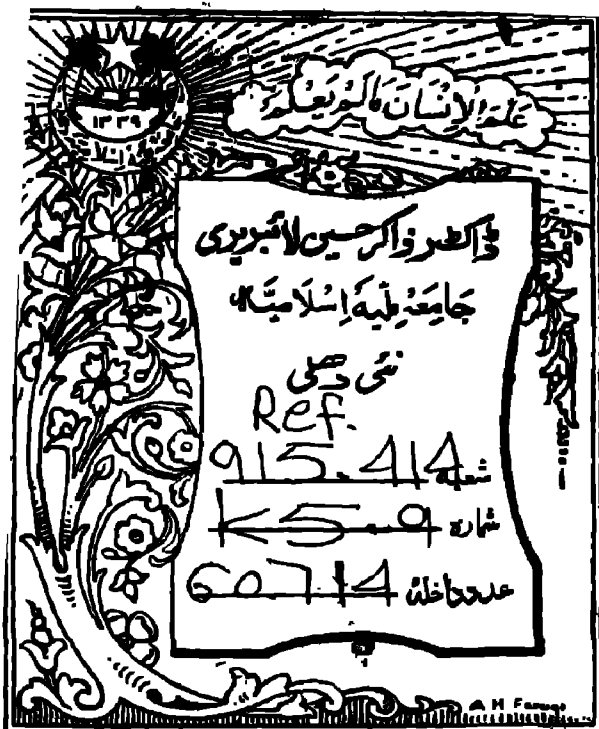 عَلَّمَ الْاِنْسَانَ مَالَمْ يَعْلَمْ
۱۳۳۹
ڈاکٹر ذاکر حسین لائبریری
جَامِعَہ مِلّیَہ اِسْلَامِیَّہ
نئی دھلی
Ref.
شعبہ 915.414
شمارہ K5.9
عدد داخلہ 60714
A H Faruqi